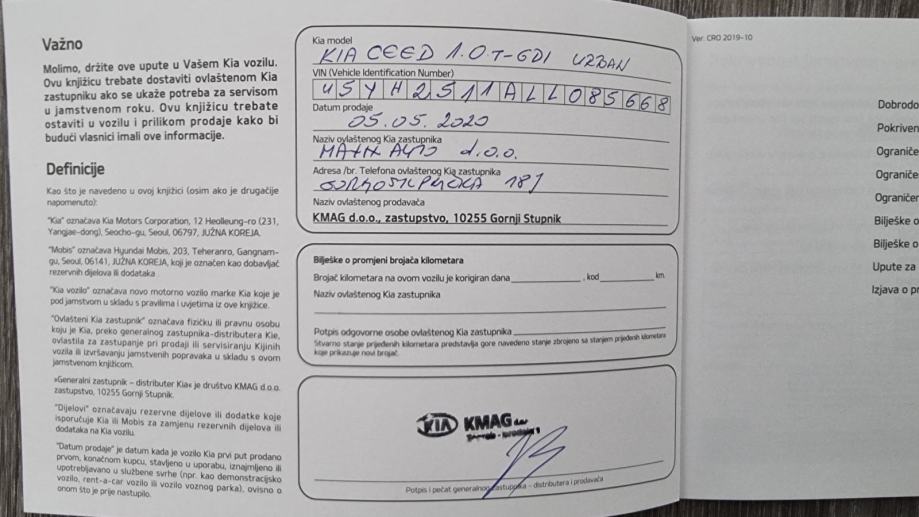 Važno
Molimo, držite ove upute u Vašem Kia vozilu.
Ovu knjižicu trebate dostaviti ovlaštenom Kia
zastupniku ako se ukaže potreba za servisom
u jamstvenom roku. Ovu knjižicu trebate
ostaviti u vozilu i prilikom prodaje kako bi
budući vlasnici imali ove informacije.
Definicije
Kao što je navedeno u ovoj knjižici (osim ako je drugačije
napomenuto):
"Kia" označava Kia Motors Corporation, 12 Heolleung-ro (231,
Yangjae-dong), Seocho-gu, Seoul, 06797, JUŽNA KOREJA.
"Mobis" označava Hyundai Mobis, 203, Teheranro, Gangnam-
gu, Seoul, 06141, JUŽNA KOREJA, koji je označen kao dobavljač
rezervnih dijelova ili dodataka
"Kia vozilo" označava novo motorno vozilo marke Kia koje je
pod jamstvom u skladu s pravilima i uvjetima iz ove knjižice.
"Ovlašteni Kia zastupnik" označava fizičku ili pravnu osobu
koju je Kia, preko generalnog zastupnika-distributera Kie,
ovlastila za zastupanje pri prodaji ili servisiranju Kijinih
vozila ili izvršavanju jamstvenih popravaka u skladu s ovom
jamstvenom knjižicom.
»Generalni zastupnik – distributer Kia« je društvo KMAG d.o.o.
zastupstvo, 10255 Gornji Stupnik.
"Dijelovi" označavaju rezervne dijelove ili dodatke koje
isporučuje Kia ili Mobis za zamjenu rezervnih dijelova ili
dodataka na Kia vozilu.
"Datum prodaje" je datum kada je vozilo Kia prvi put prodano
prvom, konačnom kupcu, stavljeno u uporabu, iznajmljeno ili
upotrebljavano u službene svrhe (npr. kao demonstracijsko
vozilo, rent-a-car vozilo ili vozilo voznog parka), ovisno o
onom što je prije nastupilo.
Kia model
KIA CEED 1.0 T-GDI URBAN
VIN (Vehicle Identification Number)
U5YH2511ALL085668
Datum prodaje
05.05.2020
Naziv ovlaštenog Kia zastupnika
d.o.o.
Adresa /br. Telefona ovlaštenog Kia zastupnika
Naziv ovlaštenog prodavača
KMAG d.o.o., zastupstvo, 10255 Gornji Stupnik
Bilješke o promjeni brojača kilometara
Brojač kilometara na ovom vozilu je korigiran dana , kod km.
Naziv ovlaštenog Kia zastupnika
Potpis odgovorne osobe ovlaštenog Kia zastupnika
Stvarno stanje prijeđenih kilometara predstavlja gore navedeno stanje zbrojeno sa stanjem prijeđenih kilometara
koje prikazuje novi brojač.
KIA KMAG
Potpis i pečat generalnog zastupnika – distributera i prodavača
Ver. CRO 2019-10
Dobrodo
Pokriven
Ograniče
Ograniče
Ograničer
Bilješke o
Bilješke o
Upute za
Izjava o pr